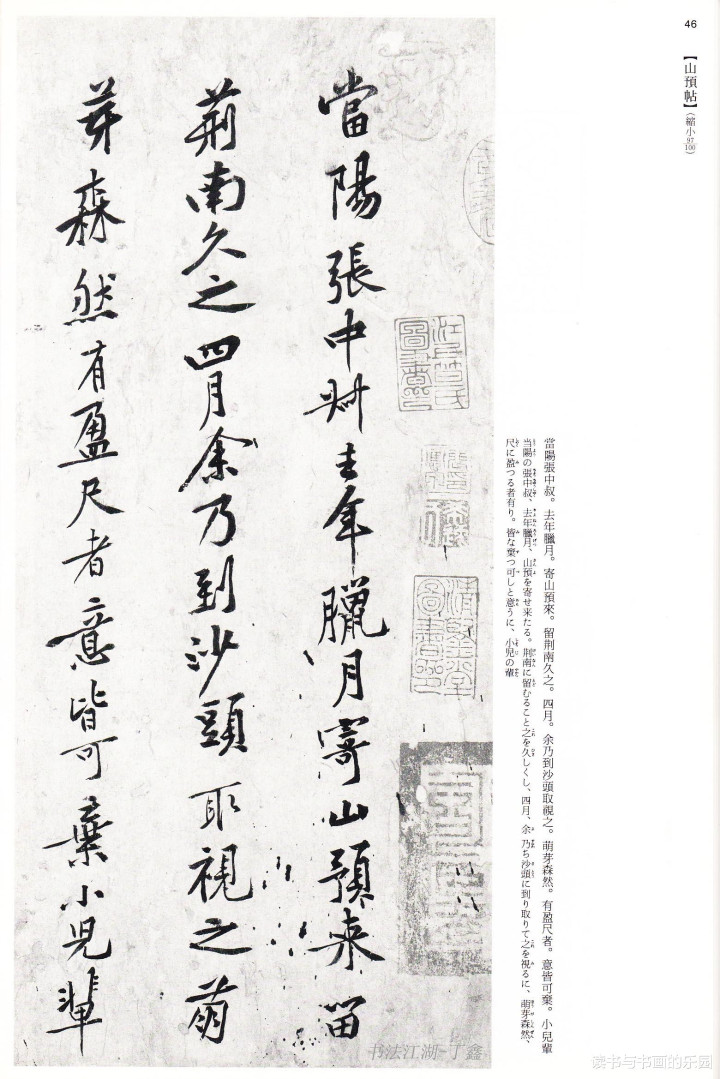 46
【山預帖】(縮小97/100)
當陽張中叔去年臘月寄山預来留
荊南久之四月余乃到沙頭取視之萌
芽森然有盈尺者意皆可棄小児輩
當陽張中叔。去年臘月。寄山預來。留荊南久之。四月。余乃到沙頭取視之。萌芽森然。有盈尺者。意皆可棄。小兒輩
当陽の張中叔、去年臘月、山預を寄せ来たる。荆南に留むること之を久しくし、四月、余 乃ち沙頭に到り取りて之を視るに、萌芽森然、
尺に盈つる者有り。皆な棄つ可しと意うに、小児の輩
书法江湖-丁鑫
读书与书画的乐园